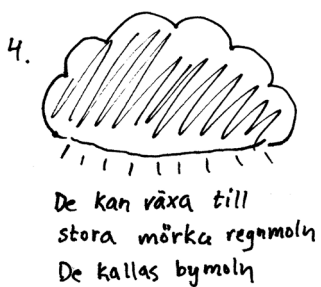 4.
De kan växa till
stora mörka regnmoln
De kallas bymoln